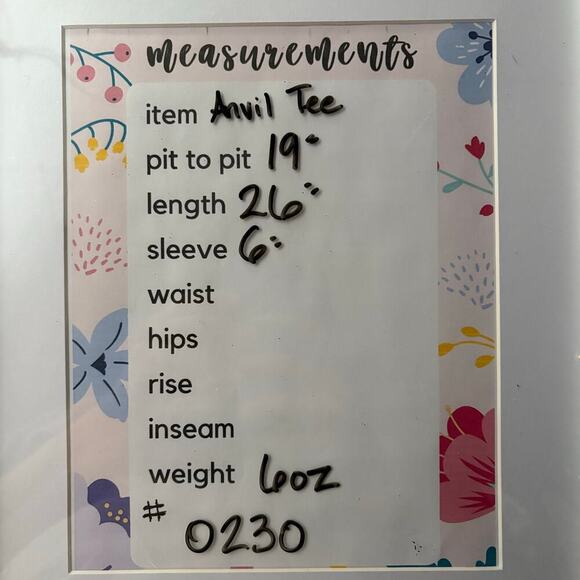 measurements
item Anvil Tee
pit to pit 19"
length 26"
sleeve 6"
waist
hips
rise
inseam
weight 6oz
# 0230